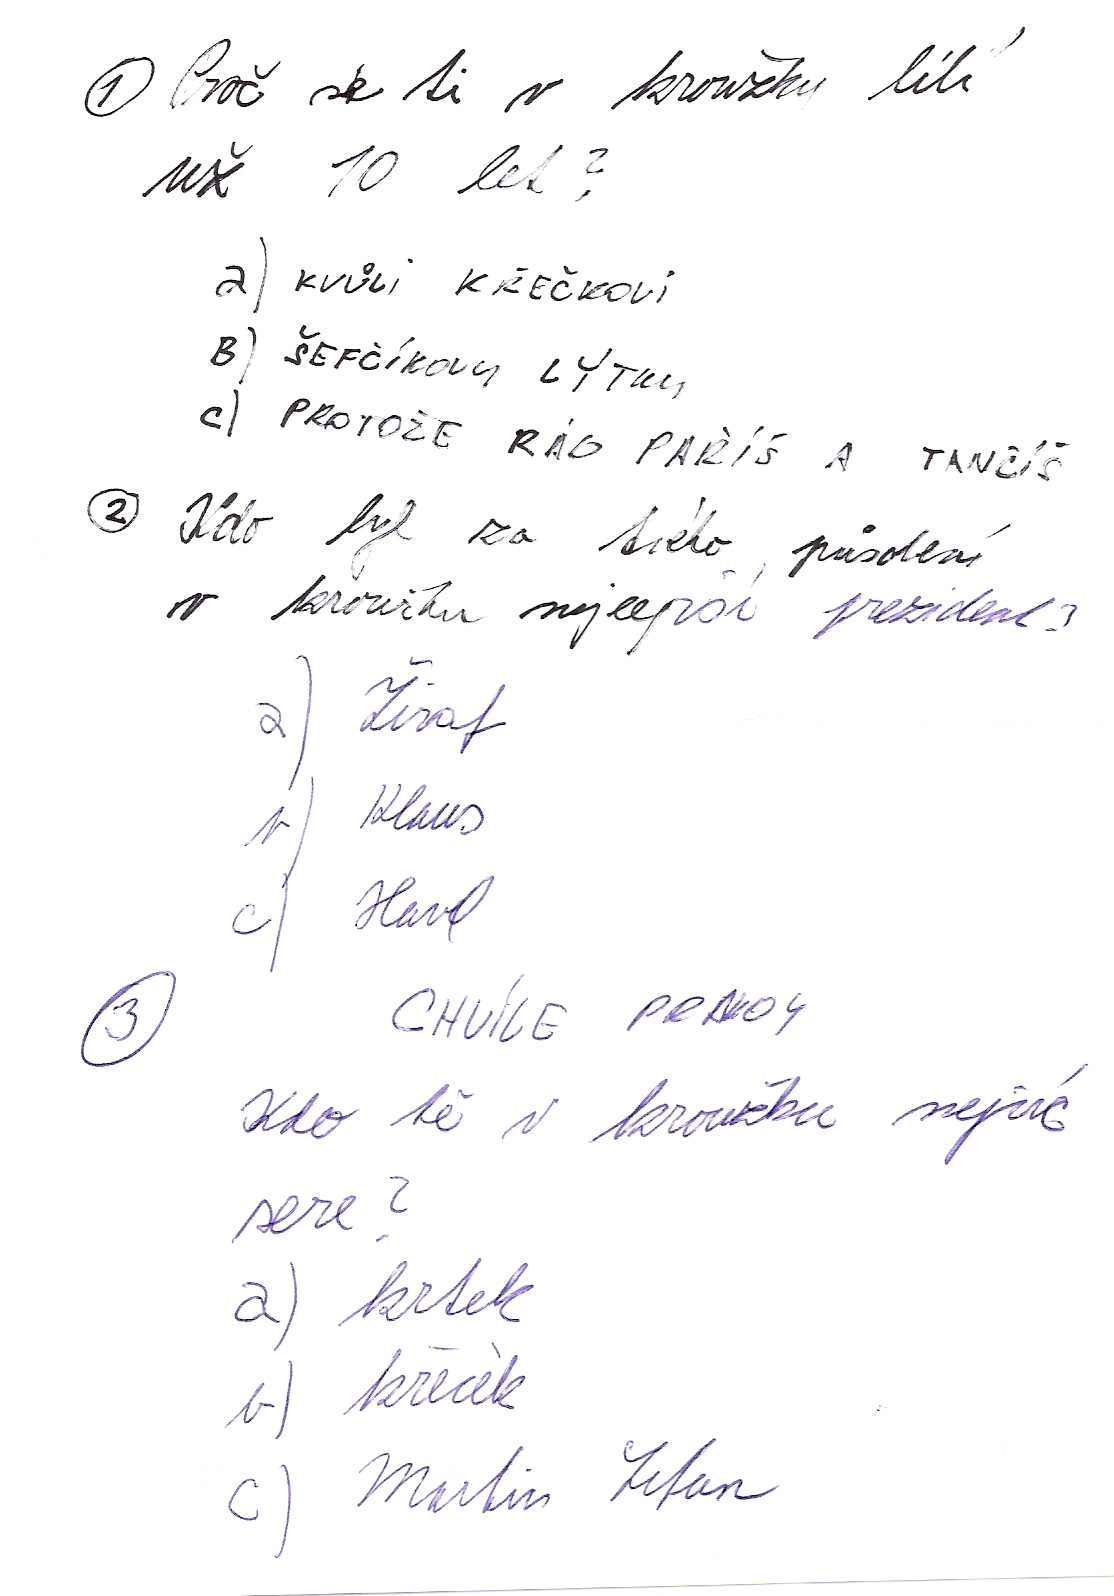 1 Proč se ti v kroužku líbí
už 10 let?
a) KVŮLI KŘEČKOVI
B) ŠEFČÍKOVY LÝTKY
c) PROTOŽE RÁD PAŘÍŠ A TANČÍŠ
2 Kdo byl za tvého působení
v kroužku nejlepší prezident?
a) Žiraf
b) Klaus
c) Havel
3 CHVÍLE PRAVDY
Kdo tě v kroužku nejvíc
sere?
a) krtek
b) křeček
c) Martin